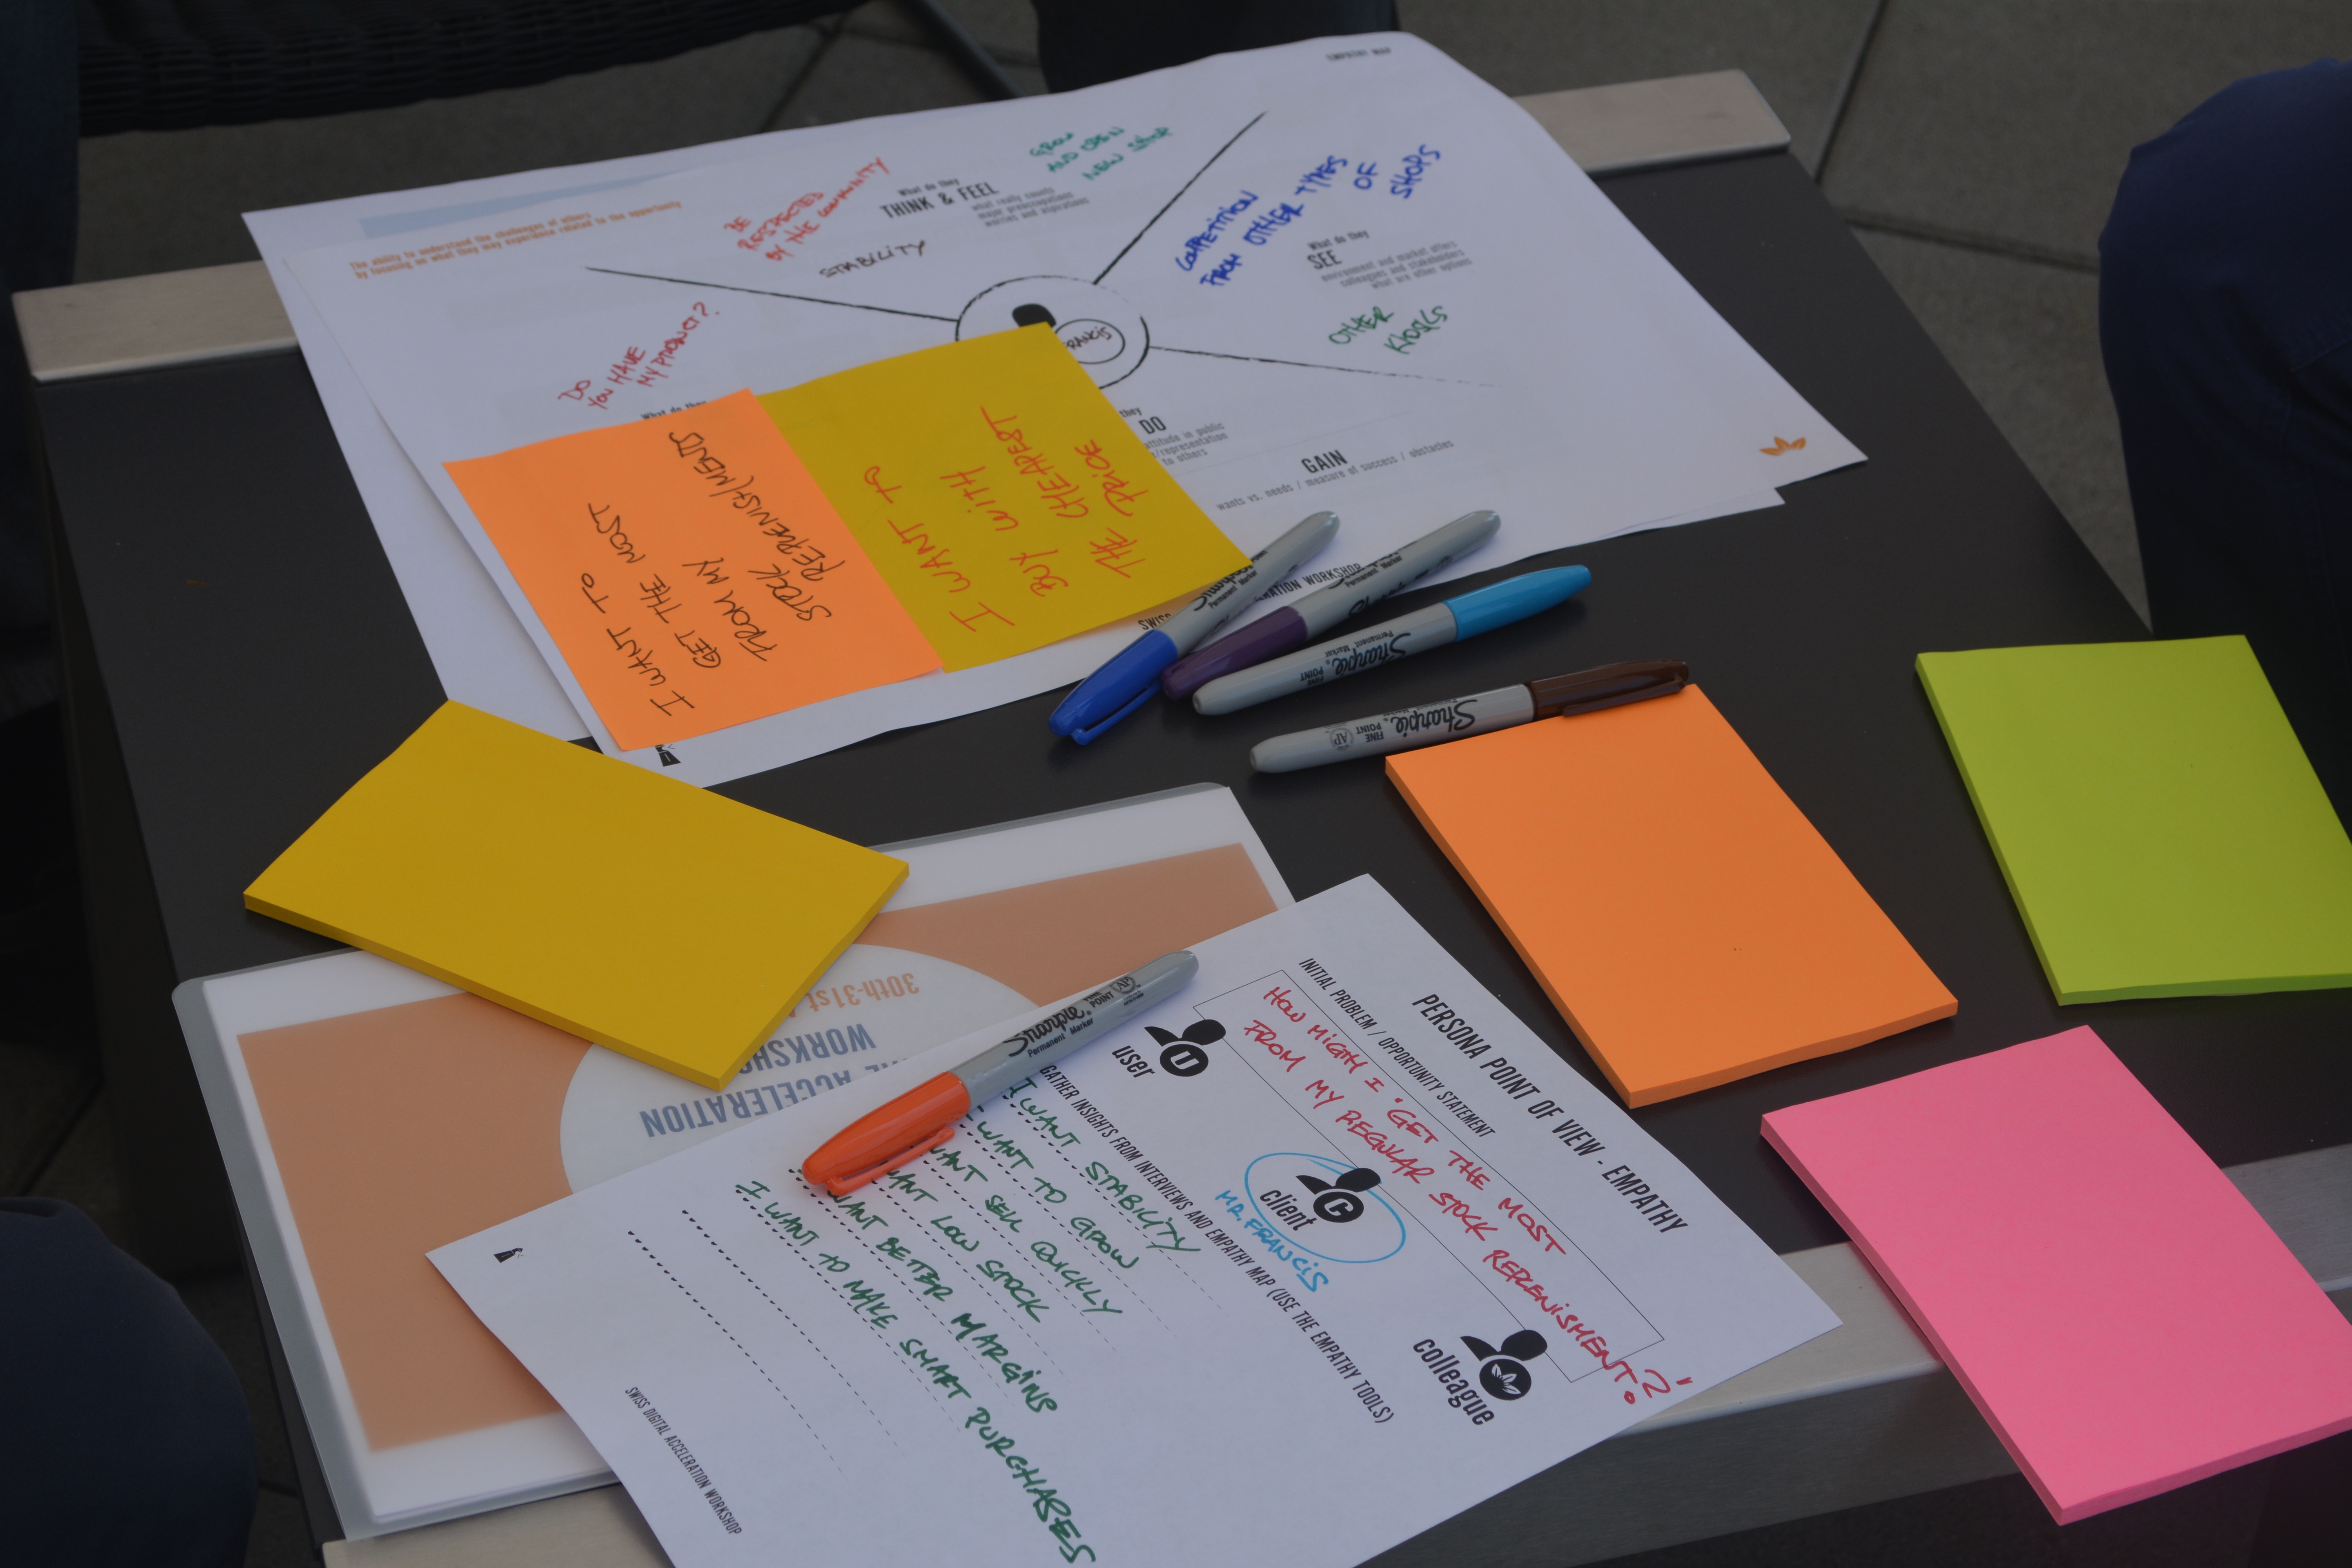 EMPATHY MAP
The ability to understand the challenges of others
by focusing on what they may experience related to the opportunity
What do they
THINK & FEEL
what really counts
major preoccupations
worries and aspirations
BE
RESPECTED
BY THE COMMUNITY
GROW
AND OPEN
NEW SHOP
STABILITY
COMPETITION
FROM OTHER TYPES
OF
SHOPS
What do they
SEE
environment and market offers
colleagues and stakeholders
what are other options
OTHER
KIOSKS
FRANCIS
DO
YOU HAVE
MY PRODUCT?
What do they
they
DO
attitude in public
/representation
to others
GAIN
wants vs. needs / measure of success / obstacles
I WANT TO
GET THE MOST
FROM MY
STOCK
REPLENISH(MENTS
I WANT TO
BUY WITH
THE CHEAPEST
PRICE
SWISS
RATION WORKSHOP
Sharpie
Permanent Marker
Permanent Marker
Sharpie
Permanent Marker
FINE POINT
Sharpie
Permanent Marker
FINE POINT
AP
30th-31st
ACCELERATION
WORKSHOP
Sharpie
Permanent Marker
FINE POINT
AP
PERSONA POINT OF VIEW - EMPATHY
INITIAL PROBLEM / OPPORTUNITY STATEMENT
HOW MIGHT I 'GET THE MOST
FROM MY REGULAR STOCK REPLENISHMENT?'
U
user
C
client
MR. FRANCIS
colleague
GATHER INSIGHTS FROM INTERVIEWS AND EMPATHY MAP (USE THE EMPATHY TOOLS)
I WANT STABILITY
WANT TO GROW
WANT SELL QUICKLY
WANT LOW STOCK
WANT BETTER MARGINS
I WANT TO MAKE SMART PURCHASES
SWISS DIGITAL ACCELERATION WORKSHOP